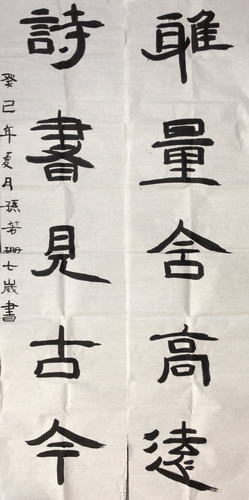 雅量含高遠
詩書見古今
癸巳年夏月孫若珊七歲書